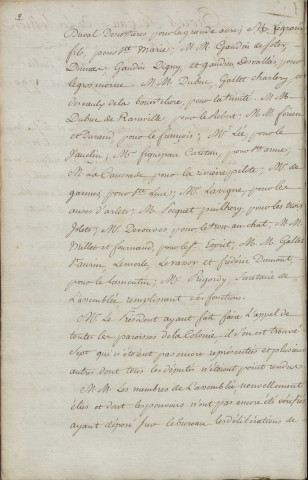 2
Duval Derosières, pour la grande anse; Mr. Legrand
fils, pour Ste. Marie; M. M. Gaudin de
Dumas Gaudin Digny, et Gaudin Desvallées, pour
le gros morne. M. M. Dubuc Gallet Charlery, et
de la pointe, pour la trinité. M. M.
Dubuc de Ranville pour le Robert; M. M.
et Durand, pour le françois; Mr. Lée, pour le
Vauclin; Mr. pour Ste. anne;
M. La Caussade, pour la rivière pilote; Mr. de
gannes, pour Ste. Luce; Mr. Lavigne, pour les
anses d'arlets; Mr. Jocquet pour les trois
Islets; Mr. pour le trou au chat; M. M.
Millet et fournand, pour le St. Esprit; M. M. Gallet
Laurin, Lemerle, Levavor et frédéric Dumont,
pour le lamentin; Mr. Rigordy, Secrétaire de
l'assemblée remplissant ses fonctions.
Mr. Le Président ayant fait faire l'appel de
toutes les paroisses de la Colonie, il s'en est trouvé
Sept qui n'étaient pas encore représentées et plusieurs
autres dont tous les députés n'étaient point rendus.
M. M. Les membres de l'assemblée nouvellement
élus et dont les pouvoirs n'ont pas encore été vérifiés
ayant déposé sur le bureau les délibérations de